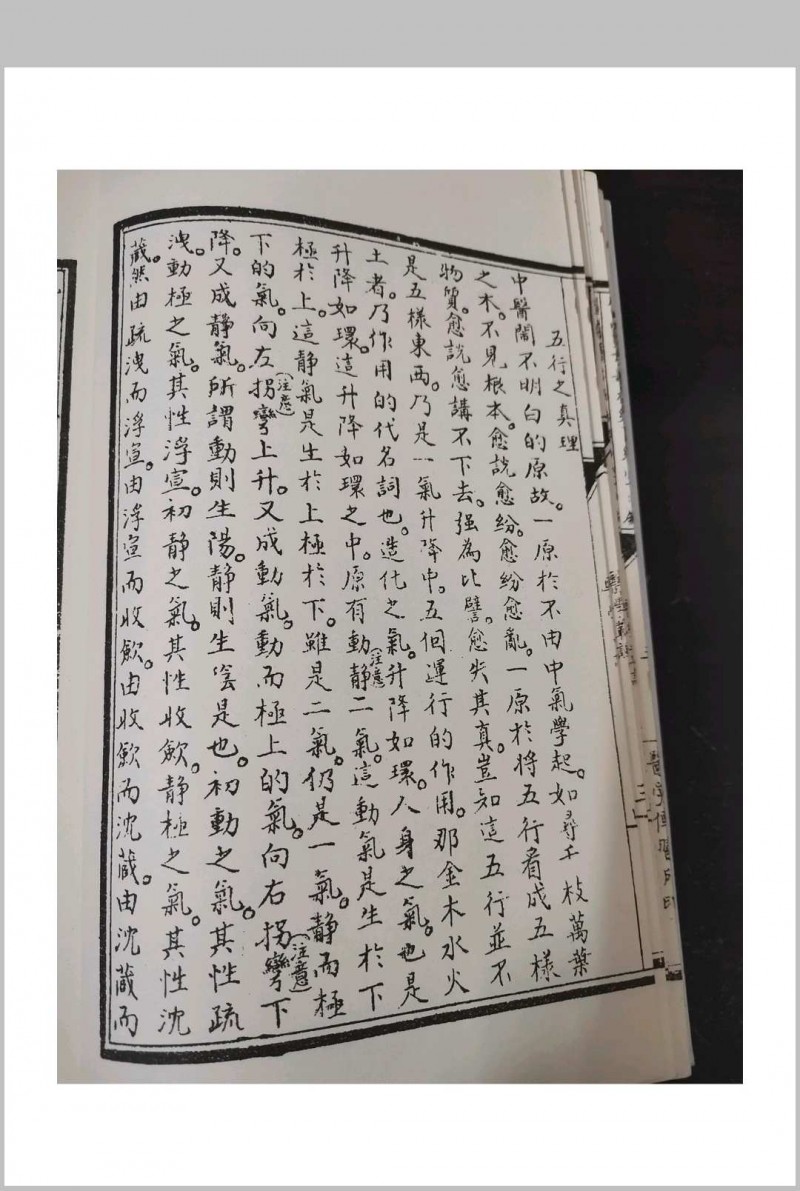 五行之真理
中醫闇不明白的原故。一原於不由中氣學起。如尋千枝萬葉
之木。不見根本。愈說愈紛。愈紛愈亂。一原於將五行看成五樣
物質。愈說愈講不下去。强為比譬。愈失其真。豈知這五行並不
是五樣東西。乃是一氣升降中。五個運行的作用。那金木水火
土者。乃作用的代名詞也。造化之氣。升降如環。人身之氣。也是
升降如環。這升降如環之中。原有動靜(注意)二氣。這動氣是生於下
極於上。這靜氣是生於上極於下。雖是二氣。仍是一氣。靜而極
下的氣。向左拐彎(注意)上升。又成動氣。動而極上的氣。向右拐彎(注意)下
降。又成靜氣。所謂動則生陽。靜則生陰是也。初動之氣。其性疏
洩。動極之氣。其性浮宣。初靜之氣。其性收歛。靜極之氣。其性沈
藏。然由疏洩而浮宣。由浮宣而收歛。由收歛而沈藏。由沈藏而